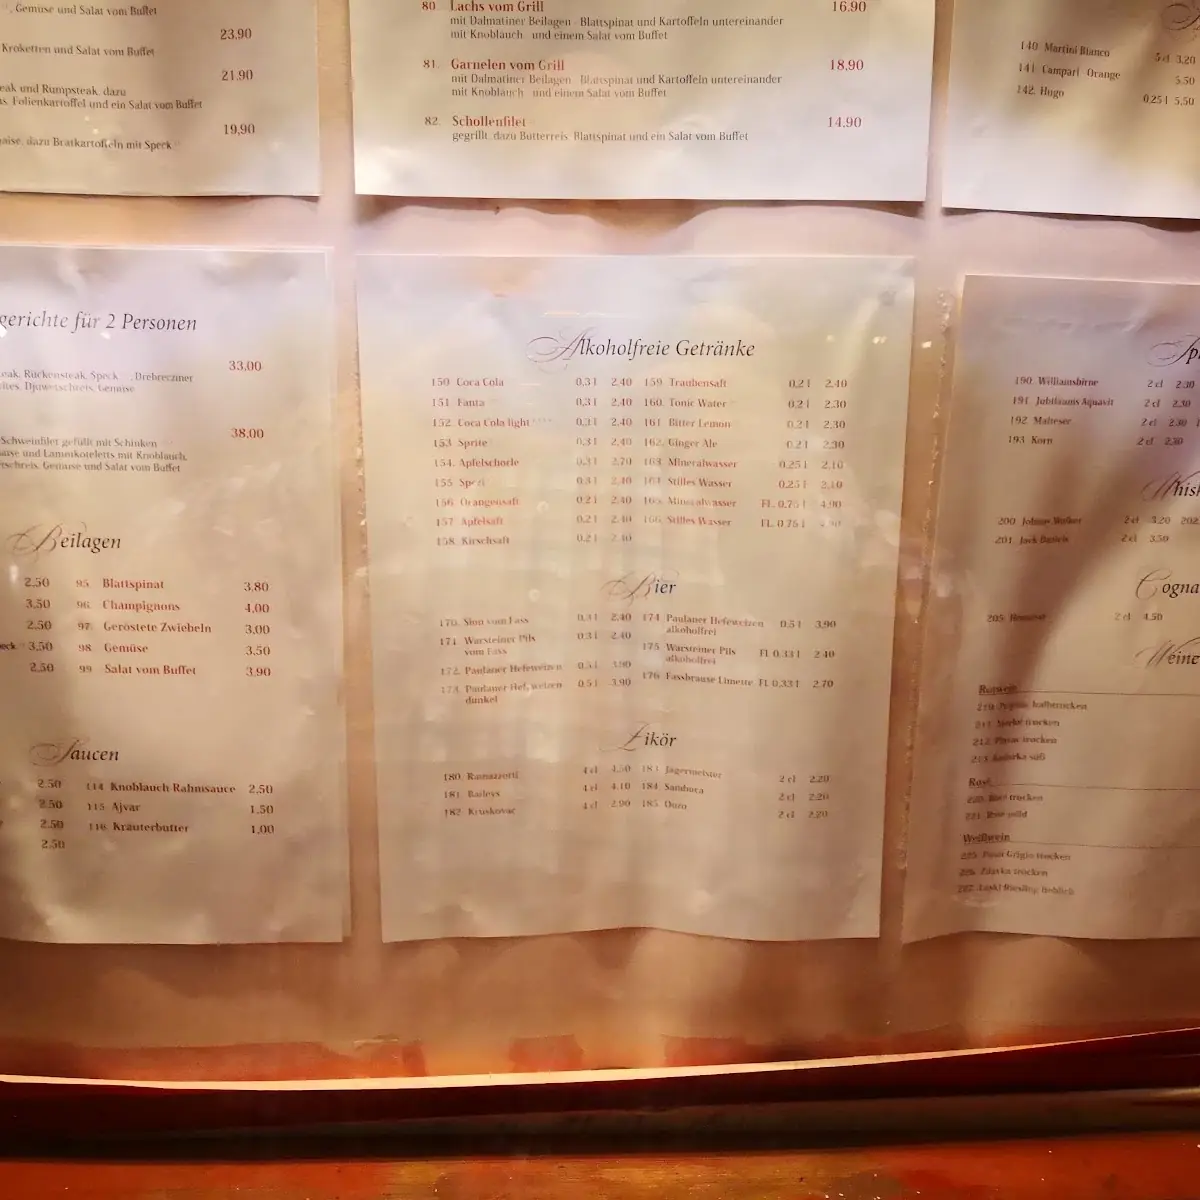 , Gemüse und Salat vom Buffet
23,90
Kroketten und Salat vom Buffet
21,90
eak und Rumpsteak, dazu
Folienkartoffel und ein Salat vom Buffet
19,90
dazu Bratkartoffeln mit Speck
80. Lachs vom Grill 16,90
mit Dalmatiner Beilagen Blattspinat und Kartoffeln untereinander
mit Knoblauch und einem Salat vom Buffet
81. Garnelen vom Grill 18,90
mit Dalmatiner Beilagen Blattspinat und Kartoffeln untereinander
mit Knoblauch und einem Salat vom Buffet
82. Schollenfilet 14,90
gegrillt, dazu Butterreis, Blattspinat und ein Salat vom Buffet
140. Martini Bianco 5 cl 3,20
141. Campari Orange 5,50
142. Hugo 0,25 l 5,50
gerichte für 2 Personen
33,00
eak, Rückensteak, Speck, Drebrecziner
Djuwetschreis, Gemüse
38,00
Schweinfilet gefüllt mit Schinken
und Lammkoteletts mit Knoblauch,
Gemüse und Salat vom Buffet
Beilagen
2,50 95. Blattspinat 3,80
3,50 96. Champignons 4,00
2,50 97. Geröstete Zwiebeln 3,00
eck 3,50 98. Gemüse 3,50
2,50 99. Salat vom Buffet 3,90
Saucen
2,50 114. Knoblauch Rahmsauce 2,50
2,50 115. Ajvar 1,50
2,50 116. Kräuterbutter 1,00
2,50
Alkoholfreie Getränke
150. Coca Cola 0,3 l 2,40 159. Traubensaft 0,2 l 2,40
151. Fanta 0,3 l 2,40 160. Tonic Water 0,2 l 2,30
152. Coca Cola light 0,3 l 2,40 161. Bitter Lemon 0,2 l 2,30
153. Sprite 0,3 l 2,40 162. Ginger Ale 0,2 l 2,30
154. Apfelschorle 0,3 l 2,70 163. Mineralwasser 0,25 l 2,10
155. Spezi 0,3 l 2,40 164. Stilles Wasser 0,25 l 2,10
156. Orangensaft 0,2 l 2,40 165. Mineralwasser Fl. 0,75 l 4,90
157. Apfelsaft 0,2 l 2,40 166. Stilles Wasser Fl. 0,75 l
158. Kirschsaft 0,2 l 2,40
Bier
170. Sion vom Fass 0,3 l 2,40 174. Paulaner Hefeweizen 0,5 l 3,90
alkoholfrei
171. Warsteiner Pils 0,3 l 2,40 175. Warsteiner Pils Fl. 0,33 l 2,40
vom Fass alkoholfrei
172. Paulaner Hefeweizen 0,5 l 3,90 176. Fassbrause Limette Fl. 0,33 l 2,70
173. Paulaner Hefeweizen 0,5 l 3,90
dunkel
Likör
180. Ramazzotti 4 cl 4,50 183. Jägermeister 2 cl 2,20
181. Baileys 4 cl 4,10 184. Sambuca 2 cl 2,20
182. Kruskovac 4 cl 2,90 185. Ouzo 2 cl 2,20
190. Williamsbirne 2 cl 2,30
191. Jubiläums Aquavit 2 cl 2,30
192. Malteser 2 cl 2,30
193. Korn 2 cl 2,30
Whis
200. Johnny Walker 2 cl 3,20 202
201. Jack Daniels 2 cl 3,50
Cogna
205. 2 cl 4,50
Weine
Rotwein
halbtrocken
trocken
212. trocken
süß
Rosé
trocken
Weißwein
225. Pinot Grigio trocken
trocken
Riesling lieblich